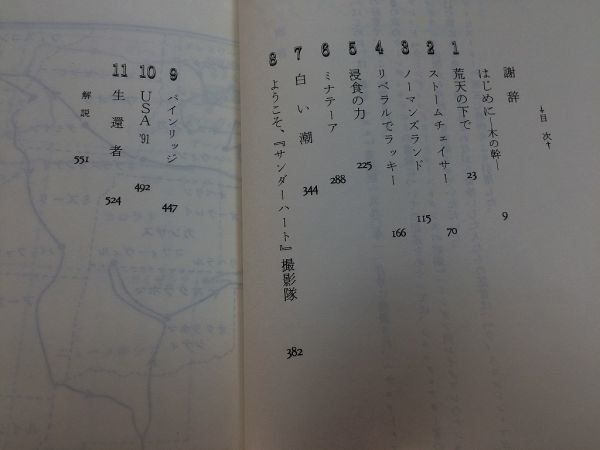 ↓目次↑
謝辞
はじめに―木の幹― 9
1 荒天の下で 23
2 ストームチェイサー 70
3 ノーマンズランド 115
4 リベラルでラッキー 166
5 浸食の力 225
6 ミナテーア 288
7 白い潮 344
8 ようこそ、『サンダーハート』撮影隊 382
9 パインリッジ 447
10 USA '91 492
11 生還者 524
解説 551